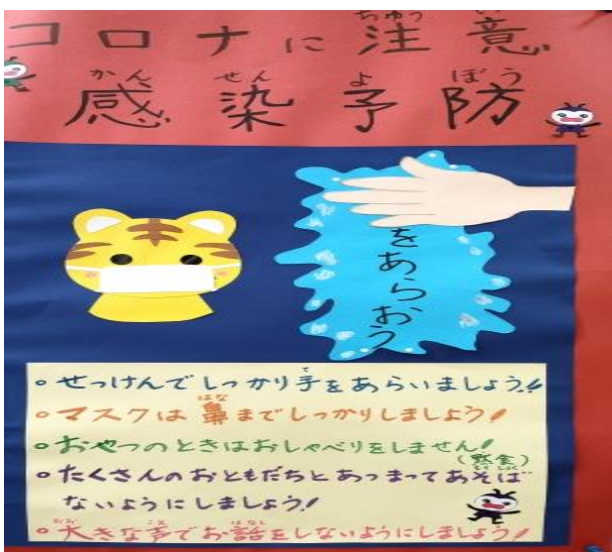 コロナに注意
ちゅうい
感染予防
かんせんよぼう
をあらおう
・せっけんでしっかり手をあらいましょう!!
て
・マスクは鼻までしっかりしましょう!
はな
・おやつのときはおしゃべりをしません!
(黙食)
もくしょく
・たくさんのおともだちとあつまってあそば
ないようにしましょう!
・大きな声でお話をしないようにしましょう!
おお こえ はなし